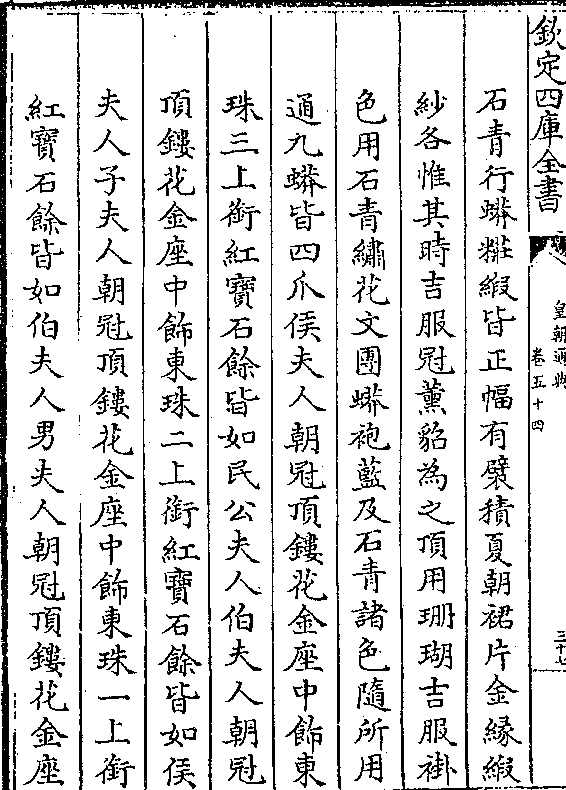 欽定四庫全書
皇朝通典
卷五十四
三十七
石青行蟒粧緞皆正幅有襞積夏朝裙片金緣緞
紗各惟其時吉服冠薰貂為之頂用珊瑚吉服褂
色用石青繡花文團蟒袍藍及石青諸色隨所用
通九蟒皆四爪侯夫人朝冠頂鏤花金座中飾東
珠三上銜紅寶石餘皆如民公夫人伯夫人朝冠
頂鏤花金座中飾東珠二上銜紅寶石餘皆如侯
夫人子夫人朝冠頂鏤花金座中飾東珠一上銜
紅寶石餘皆如伯夫人男夫人朝冠頂鏤花金座